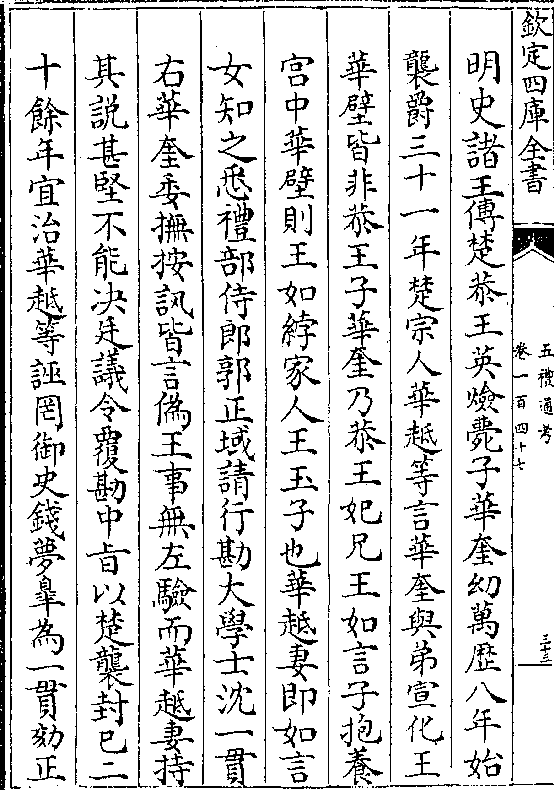 欽定四庫全書
五禮通考
卷一百四十七
三十三
明史諸王傳楚恭王英㷿薨子華奎幼萬歴八年始
襲爵三十一年楚宗人華越等言華奎與弟宣化王
華壁皆非恭王子華奎乃恭王妃兄王如言子抱養
宫中華壁則王如綍家人王玉子也華越妻即如言
女知之悉禮部侍郎郭正域請行勘大學士沈一貫
右華奎委撫按訊皆言偽王事無左驗而華越妻持
其説甚堅不能决廷議令覆勘中㫖以楚襲封已二
十餘年宜治華越等誣罔御史錢夢臯為一貫劾正